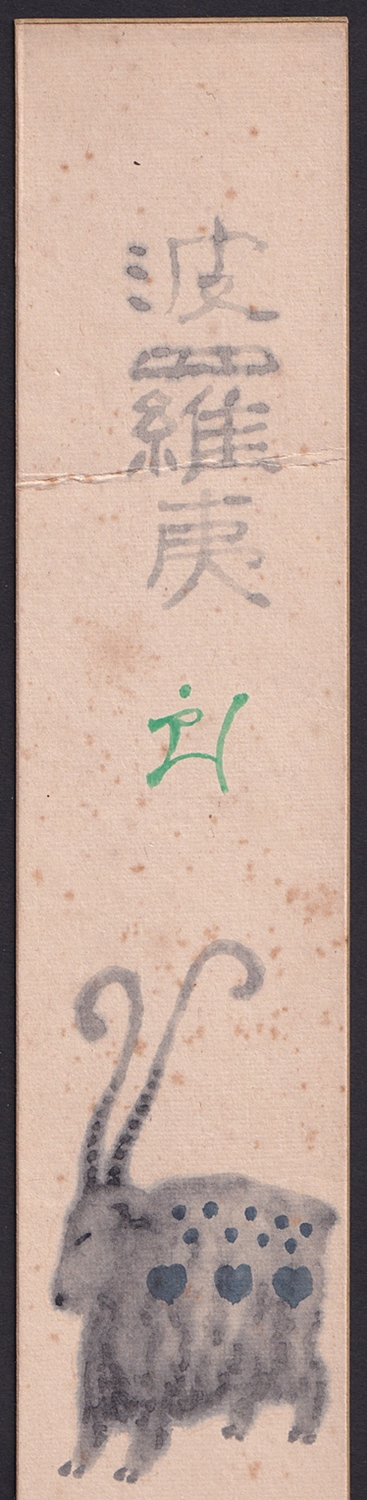 波羅夷